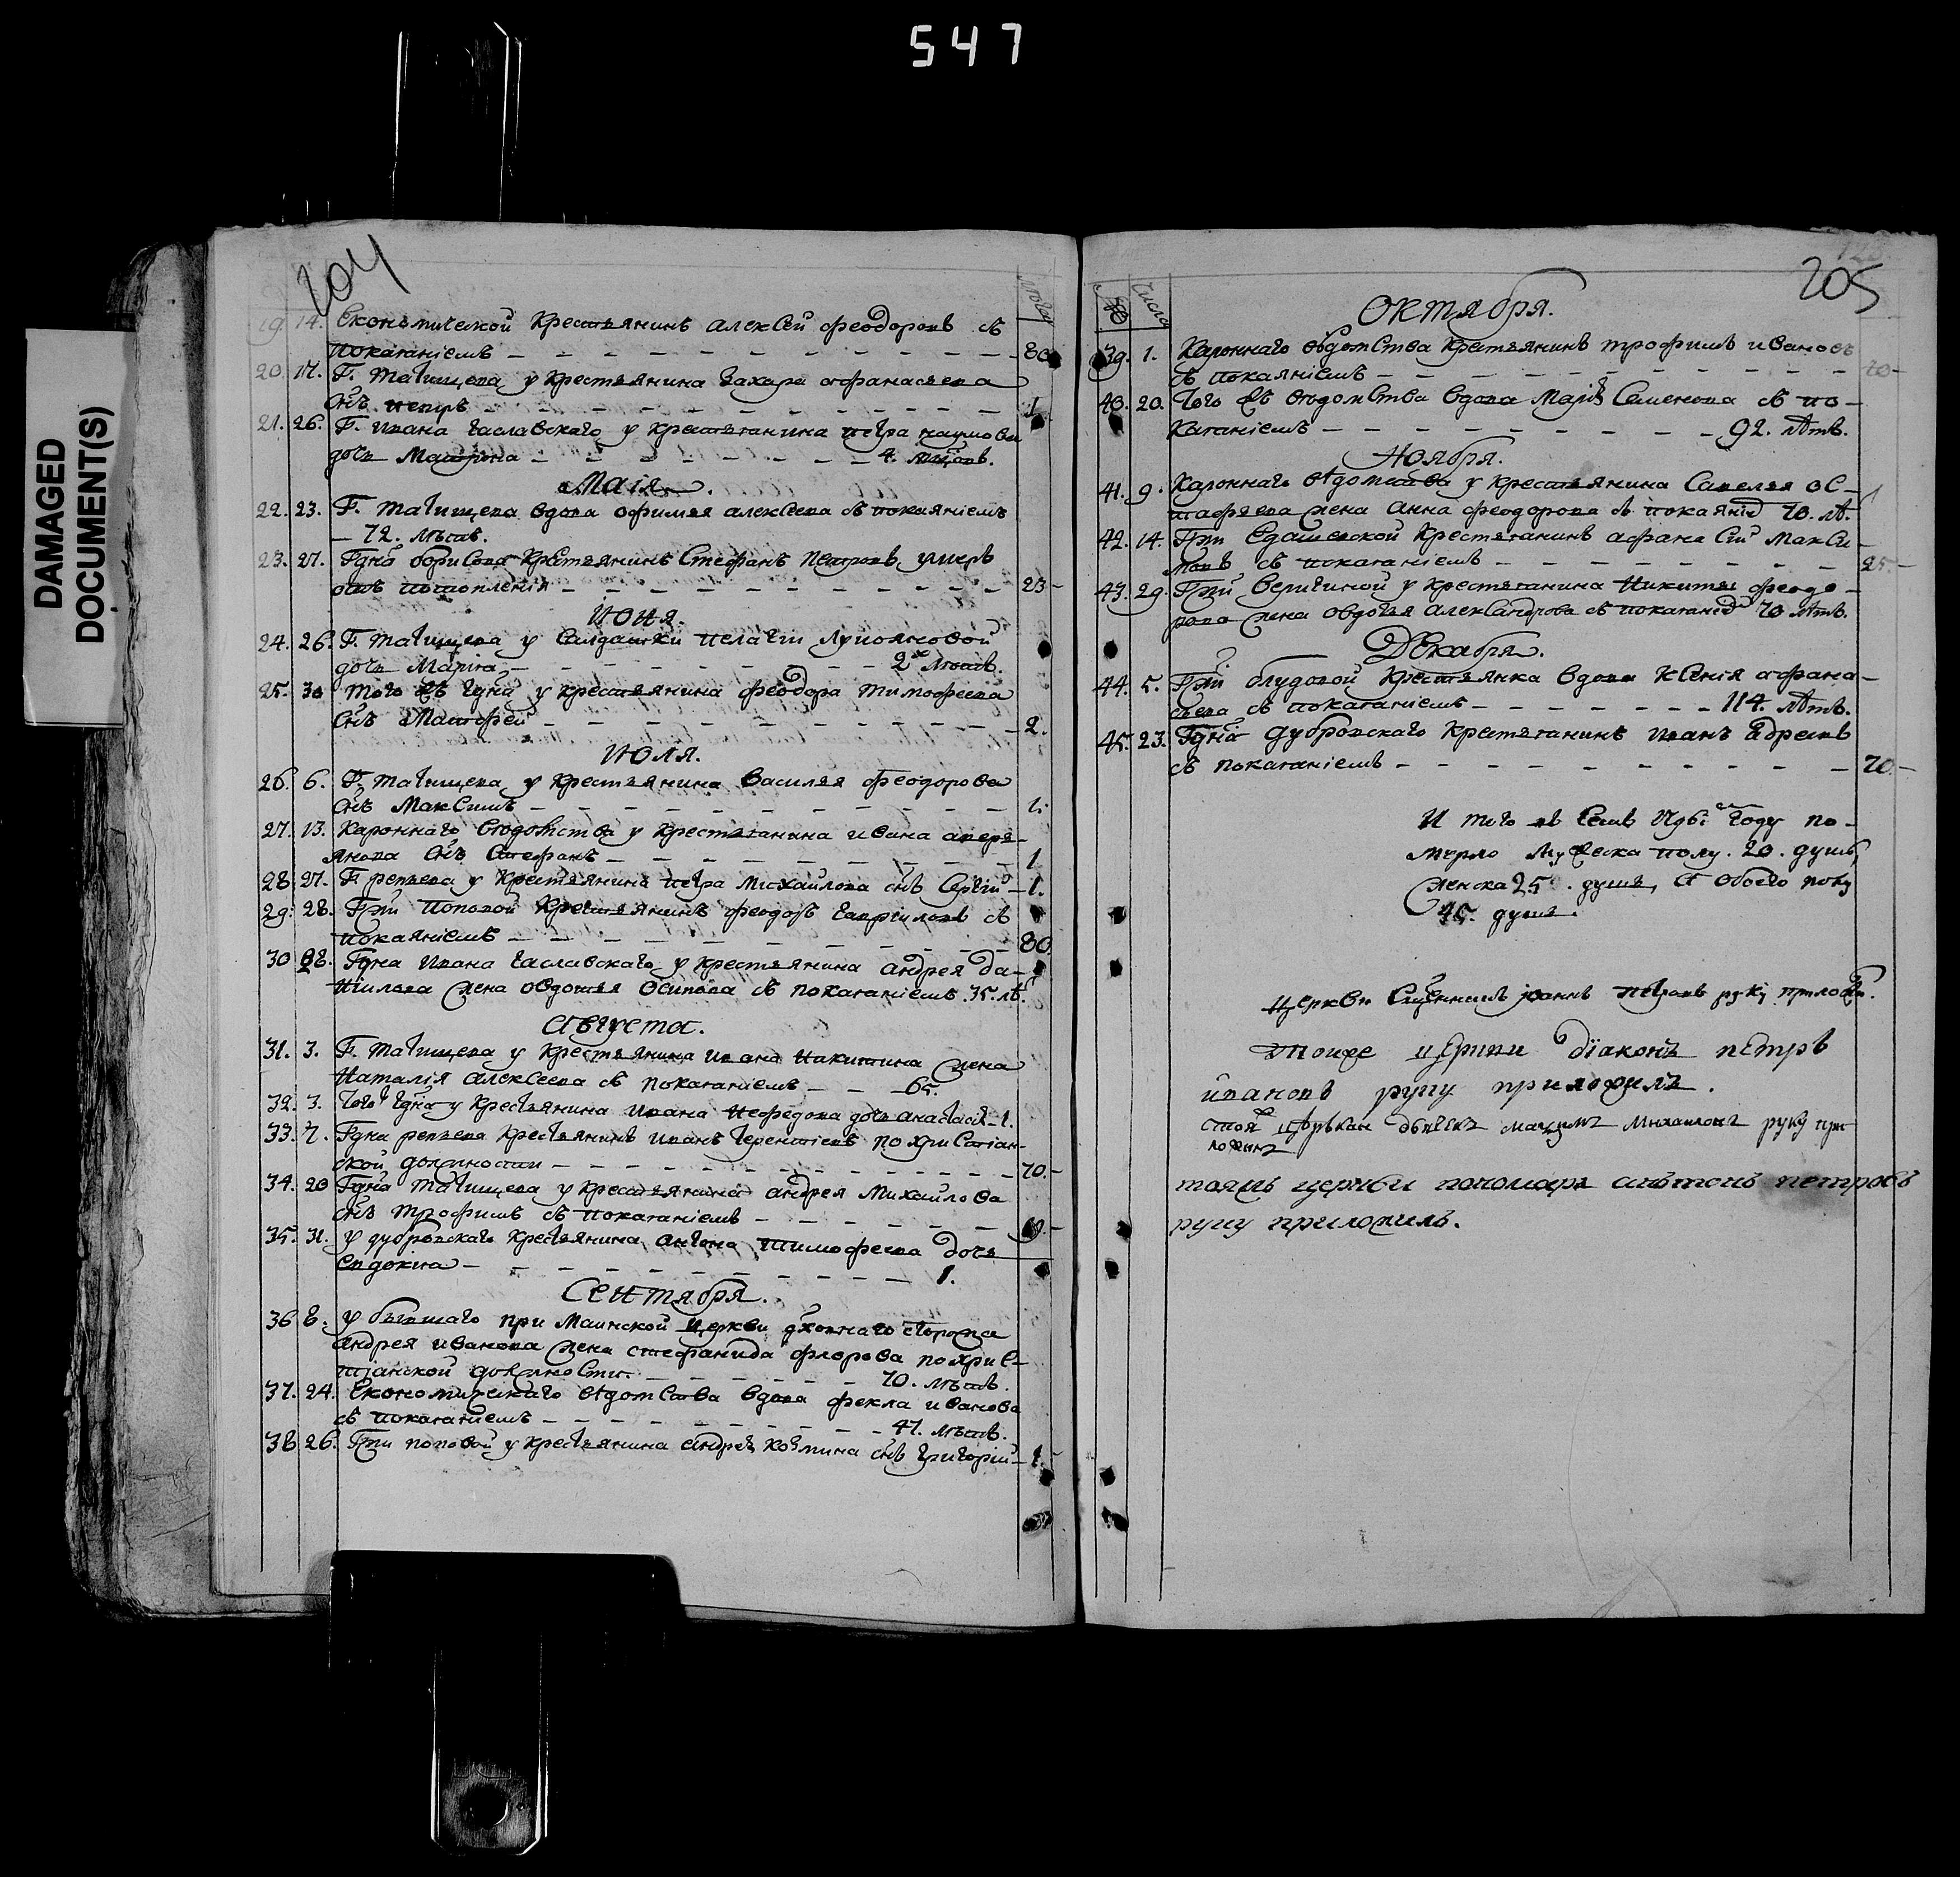 547
DAMAGED
DOCUMENT(S)
204
19. 14. Економической крестьянинъ алексѣй феодоровъ съ
покаганіемъ 80
20. 17. Г. Татищева у крестьянина захара афанасьева
снъ петръ 1
21. 26. Г. ивана чаславскаго у крестьганина петра наумова
дочь Матрона 4. мцовъ.
Маія.
22. 23. Г. татищева вдова офимья алексѣева съ покаяніемъ
72. лѣтъ.
23. 27. Гдна борисова крестьянинъ Стефанъ петровъ умеръ
отъ потопленія 23
Июня.
24. 26. Г. татищева у салдатки пелагіи лукояновой
дочь Марина 2 лѣтъ.
25. 30 того жъ гдна у крестьянина феодора тимофеева
снъ Матфей 2.
июля.
26. 6. Г. татищева у крестьянина василья феодорова
снъ Максимъ 1.
27. 13. Кароннаго вѣдомства у крестьганина ивана аверя-
янова снъ Стефанъ 1
28. 27. Г репьева у крестьянина петра михайлова снъ Сергій 1.
29. 28. Гжи поповой крестьянинъ феодоръ гавриловъ съ
покаяніемъ 80
30 28. Гдна ивана чаславскаго у крестьянина андрея да-
ниилова жена овдотья осипова съ покаганіемъ 35. лѣ.
Августа.
31. 3. Г. татищева у крестьянина ивана никитина жена
наталія алексеева съ покаганіемъ 65.
32. 3. того гдна у крестьянина ивана нефедова дочь анастасія 1.
33. 7. Гдна репьева крестьянинъ иванъ терентіевъ по христіан-
ской должности 70.
34. 20 Гдна татищева у крестьянина андрея михайлова
снъ трофимъ съ покаганіемъ
35. 31. у дубровскаго крестьянина антона тимофеева дочь
Евдокіа 1.
Сентября.
36 8. у бывшаго при церкви сторожа
андрея иванова жена стефанида флорова по хрис-
тіанской должности 70. лѣтъ.
37. 24. Економическаго вѣдомства вдова фекла иванова
съ покаганіемъ 47. лѣтъ.
38 26. Гжи поповой у крестьянина андрея козмина снъ григорій 1.
205
числа
Октября.
39. 1. Кароннаго вѣдомства крестьянинъ трофимъ ивановъ
съ покаяніемъ 70
40. 20. того жъ вѣдомства вдова Маріа Семенова съ по-
каганіемъ 92. лѣтъ.
Ноября.
41. 9. Кароннаго вѣдомства у крестьянина Савелья ос-
тафьева жена анна феодорова съ покаяніе 70. лѣ.
42. 14. Гжи Едашевской крестьганинъ афанасій макси-
мовъ съ покаганіемъ 25.
43. 29. Гжи Веригиной у крестьганина никиты феодо-
рова жена овдотья александрова съ покаганіе 70 лѣтъ.
Декабря.
44. 5. Гжи блудовой крестьянка вдова ксенія афана-
сьева съ покаганіемъ 114. лѣтъ.
45. 23. Гдна дубровскаго крестьганинъ иванъ
съ покаганіемъ 70.
И того въ семъ году по-
мерло мужеска полу. 20. душъ,
женска 25. душъ, а обоего полу
45. душъ.
церкви Сщенникъ іоаннъ петровъ руку приложи.
тоиже церкви діаконъ петръ
ивановъ руку приложилъ.
тоя церькви максимъ михаиловъ руку при
ложилъ
тояжъ церкви пономарь антонъ петровъ
руку приложилъ.